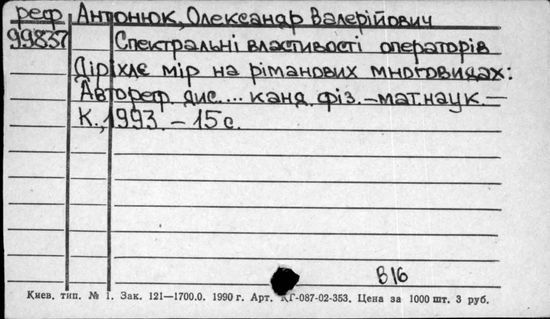 реф Антонюк, Олександр Валерійович
99837 Спектральні властивості операторів
Діріхлє мір на ріманових многовидах:
Автореф. дис.... канд. фіз.-мат.наук.—
К., 1993.-15 с.
В 16
Киев. тип. № 1. Зак. 121—1700.0. 1990 г. Арт. КГ-087-02-353. Цена за 1000 шт. 3 руб.